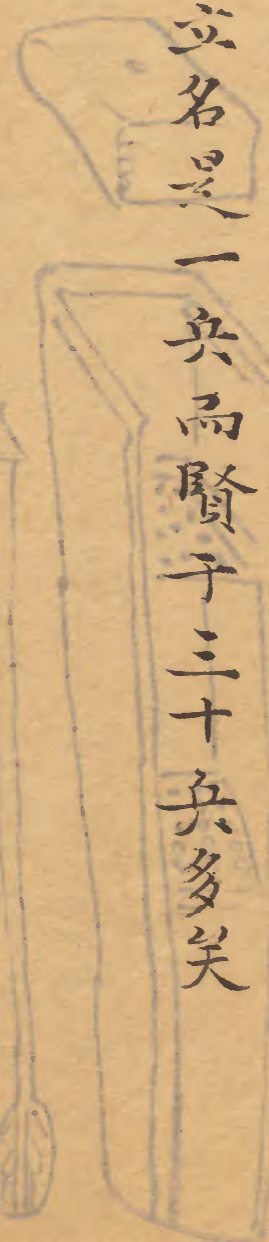 立名是一兵而賢于三十兵多矣